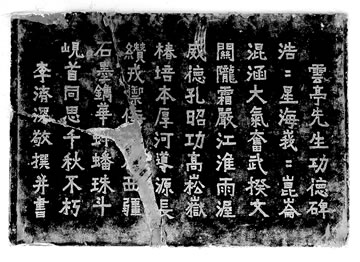 雲亭先生功德碑
浩〻星海峩〻崑崙
混涵大氣奮武揆文
關隴霜嚴江淮雨渥
威德孔昭功高崧嶽
椿培本厚河導源長
纘戎禦西疆
石墨鐫華蟠珠斗
峴首同思千秋不朽
李濟深敬撰并書